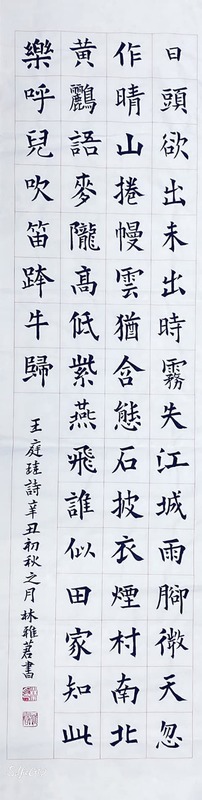 日頭欲出未出時霧失江城雨腳微天忽
作晴山捲幔雲猶含態石披衣煙村南北
黃鸝語麥隴高低紫燕飛誰似田家知此
樂呼兒吹笛跨牛歸
王庭珪詩辛丑初秋之月林雅茗書